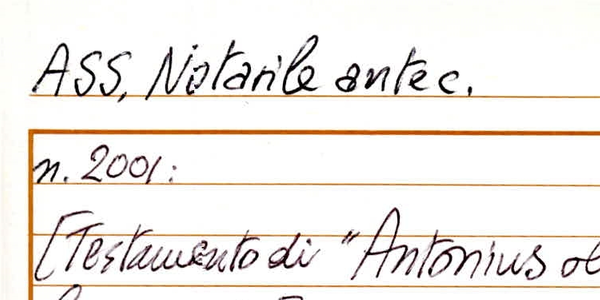 ASS, Notarile antec.
n. 2001:
[Testamento di "Antonius